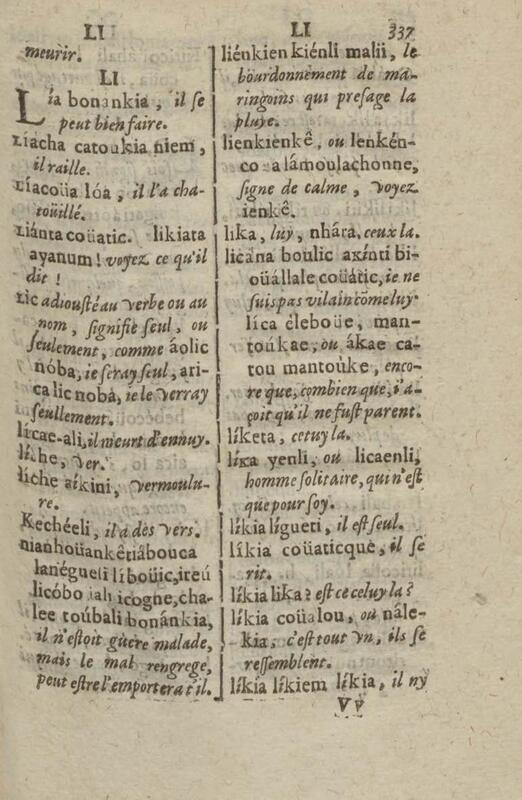 LI
meurir.
LI
Lía bonánkia, il se
peut bien faire.
Líacha catoukia niem,
il raille.
Líacoüa lóa, il l'a cha-
toüillé.
Liánta coüatic. likiata
ayanum! voyez ce qu'il
dit!
Lic adiousté au verbe ou au
nom, signifie seul, ou
seulement, comme áolic
nóba, ie seray seul, ari-
ca lic nobá, ie le verray
seullement.
lícae-ali, il meurt d'ennuy.
líche, ver.
liche aíkini, vermoulu-
re.
Kechéeli, il a des vers.
nianhoüankêtiábouca
lanégueli líboüic, ireú
licóbo íali icogne, cha-
lee toúbali bonánkia,
il n'estoit guere malade,
mais le mal rengrege,
peut estre l'emportera t'il.
LI 337
liénkien kiénli malii, le
bourdonnement de ma-
ringoins qui presage la
pluye.
lienkienkê, ou lenkén-
co alámoulachonne,
signe de calme, voyez
ienkê.
lika, luy, nhára, ceux la.
licána boulic axínti bi-
oüállale coüátic, ie ne
suis pas vilain cõme luy.
líca éleboüe, man-
toúkae, ou ákae ca-
tou mantoúke, enco-
re que, combien que, i'a-
çoit qu'il ne fust parent.
líketa, cetuy la.
líka yenli, ou licaenli,
homme solitaire, qui n'est
que pour soy.
líkia lígueti, il est seul.
líkia coüaticque, il se
rit.
líkia lika? est ce celuy la?
líkia coüalou, ou nále-
kia, c'est tout un, ils se
ressemblent.
líkia líkiem líkia, il ny
Vv